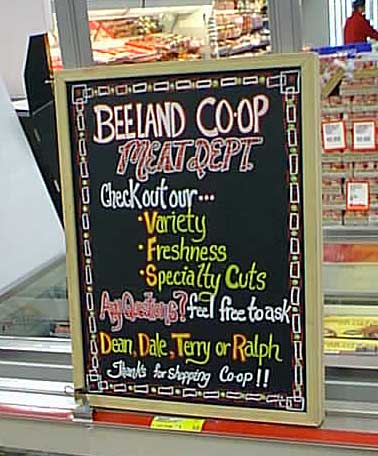 BEELAND CO-OP
MEAT DEPT.
Check out our...
• Variety
• Freshness
• Specialty Cuts
Any Questions? feel free to ask
Dean, Dale, Terry or Ralph
Thanks for shopping Co-op!!